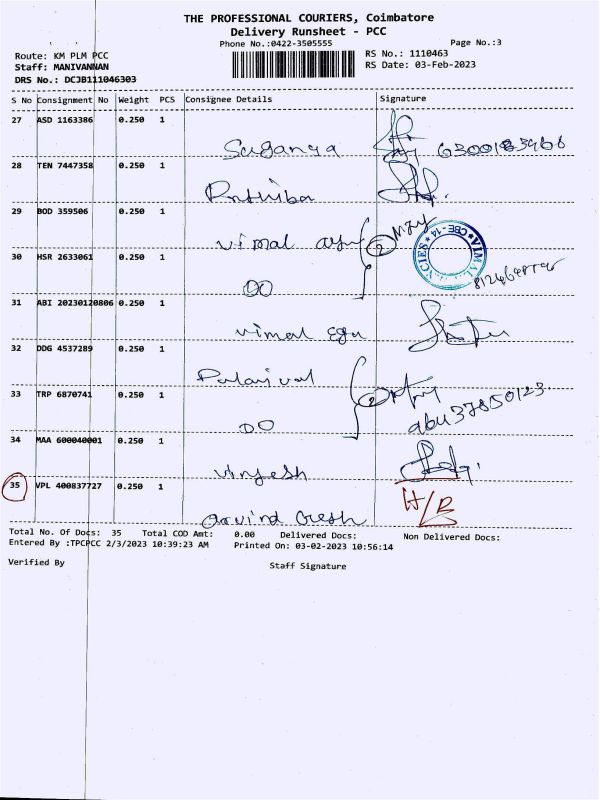 THE PROFESSIONAL COURIERS, Coimbatore
Delivery Runsheet - PCC
Phone No.:0422-3505555
Page No.:3
Route: KM PLM PCC
RS No.: 1110463
Staff: MANIVANNAN
RS Date: 03-Feb-2023
DRS No.: DCJB111046303
S No Consignment No Weight PCS Consignee Details Signature
27 ASD 1163386 0.250 1
Suganya
28 TEN 7447358 0.250 1
29 BOD 359506 0.250 1
Vimal
30 HSR 2633061 0.250 1
DO
VIMAL CBE-14
31 ABI 20230120806 0.250 1
Vimal
32 DDG 4537289 0.250 1
33 TRP 6870741 0.250 1
DO
34 MAA 600040001 0.250 1
35 VPL 400837727 0.250 1
H/B
Arvind
Total No. Of Docs: 35 Total COD Amt: 0.00 Delivered Docs: Non Delivered Docs:
Entered By :TPCPCC 2/3/2023 10:39:23 AM Printed On: 03-02-2023 10:56:14
Verified By
Staff Signature